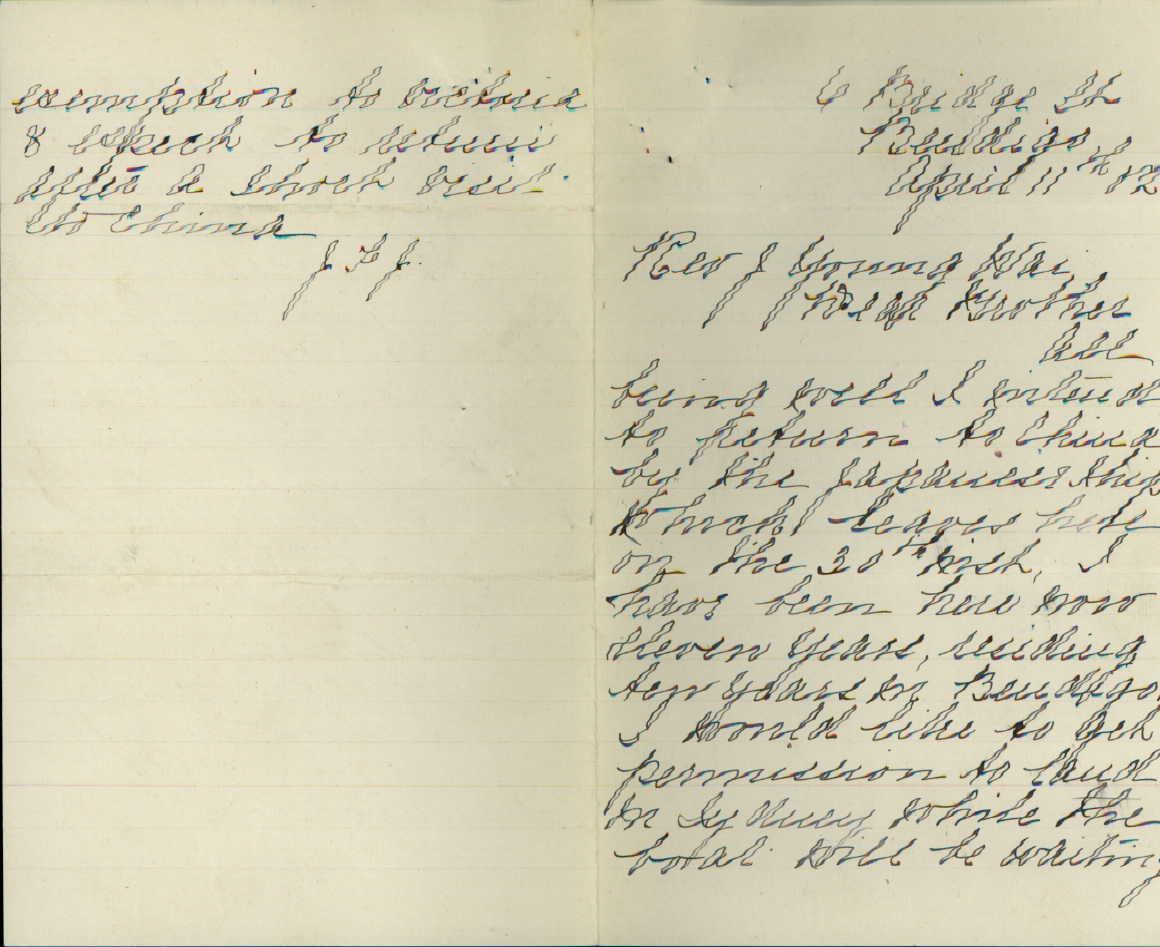 exemption to Victoria
& expect to return
after a short visit
to China
J P J.
6 Bridge St
Bendigo
April 11th 12
Rev J Young Wai
Dear Brother
All
being well I intend
to return to China
by the Japanese ship
which leaves here
on the 30th inst, I
have been here now
eleven years, residing
ten years in Bendigo
I would like to get
permission to land
in Sydney while the
boat will be waiting